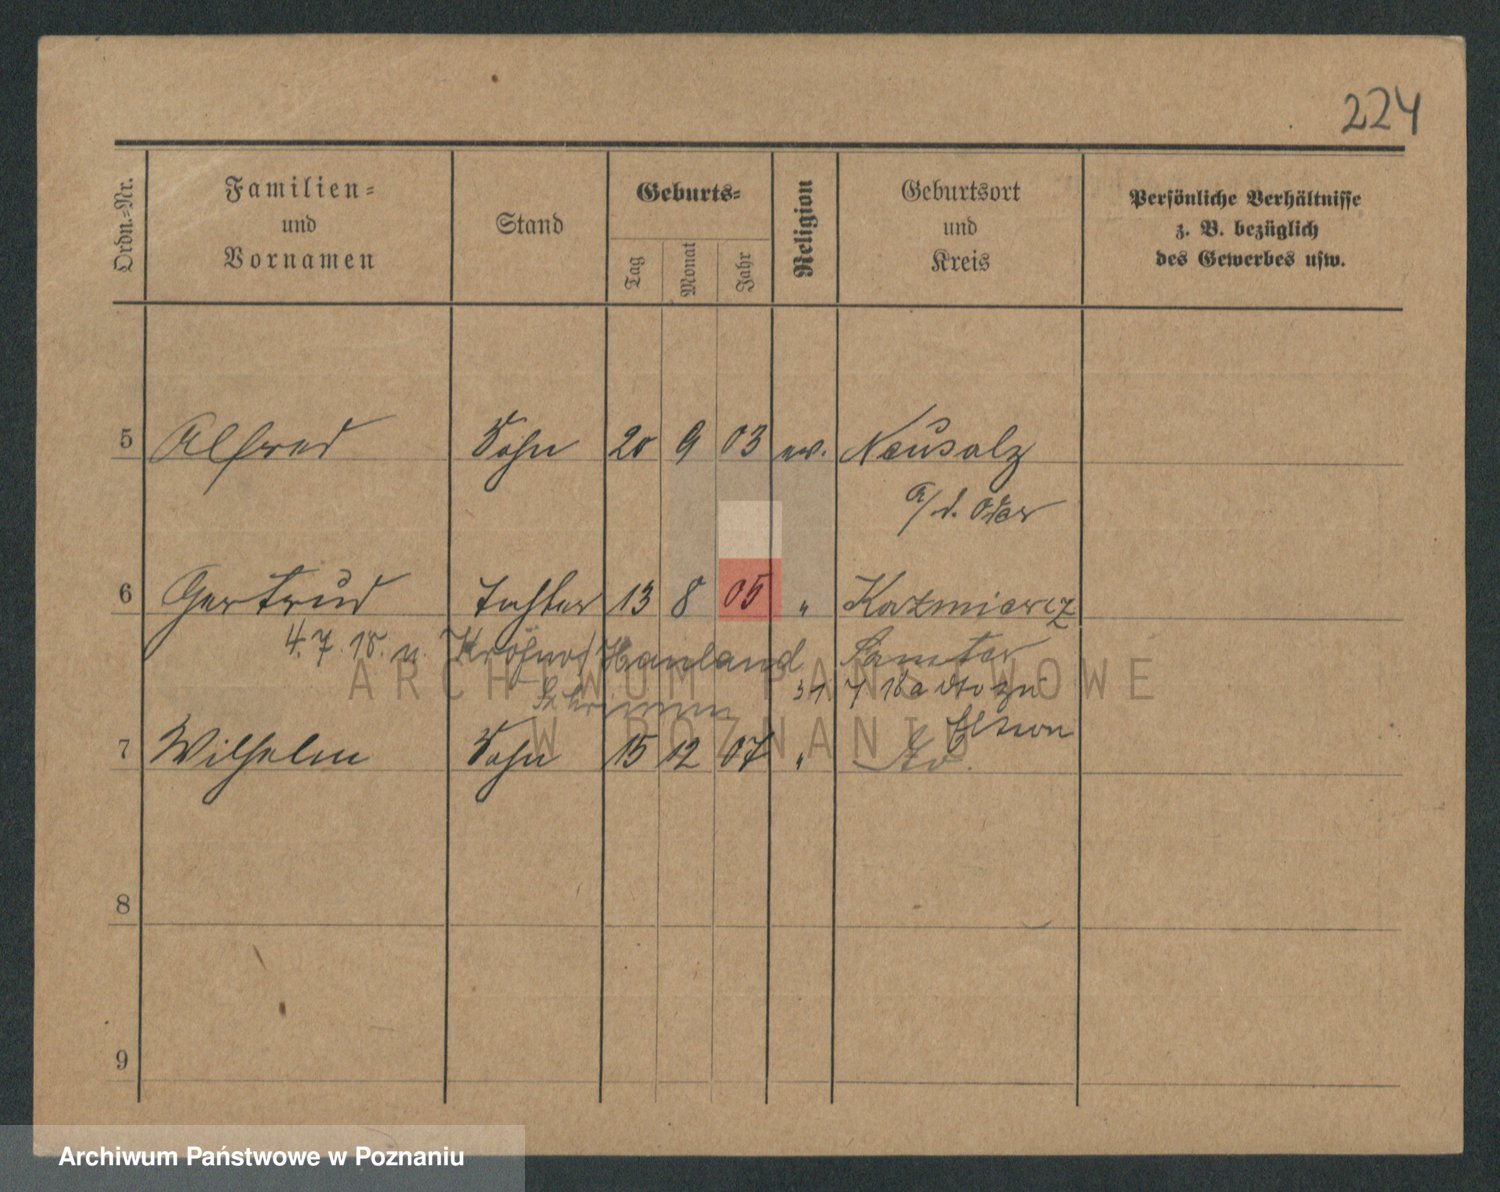 224
Ordn.=Nr.
Familien=
und
Vornamen
Stand
Geburts=
Tag
Monat
Jahr
Religion
Geburtsort
und
Kreis
Persönliche Verhältnisse
z. B. bezüglich
des Gewerbes usw.
5 Alfred Sohn 20 9 03 ev. Neusalz
a/d. Oder
6 Gertrud Tochter 13 8 05 " Kazmierz
4. 7. 18. n. Hauland Samter
31. 7 18 a dto zu
Schrimm
7 Wilhelm Sohn 15 12 07 "
8
9
ARCHIWUM PAŃSTWOWE
W POZNANIU
Archiwum Państwowe w Poznaniu